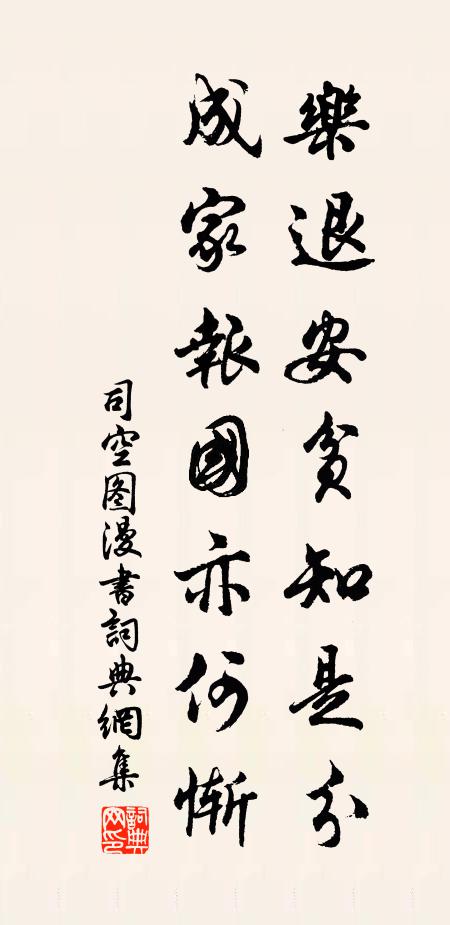 樂退安貧知是分
成家報國亦何慚
司空图漫書詞典網集
詞典網印